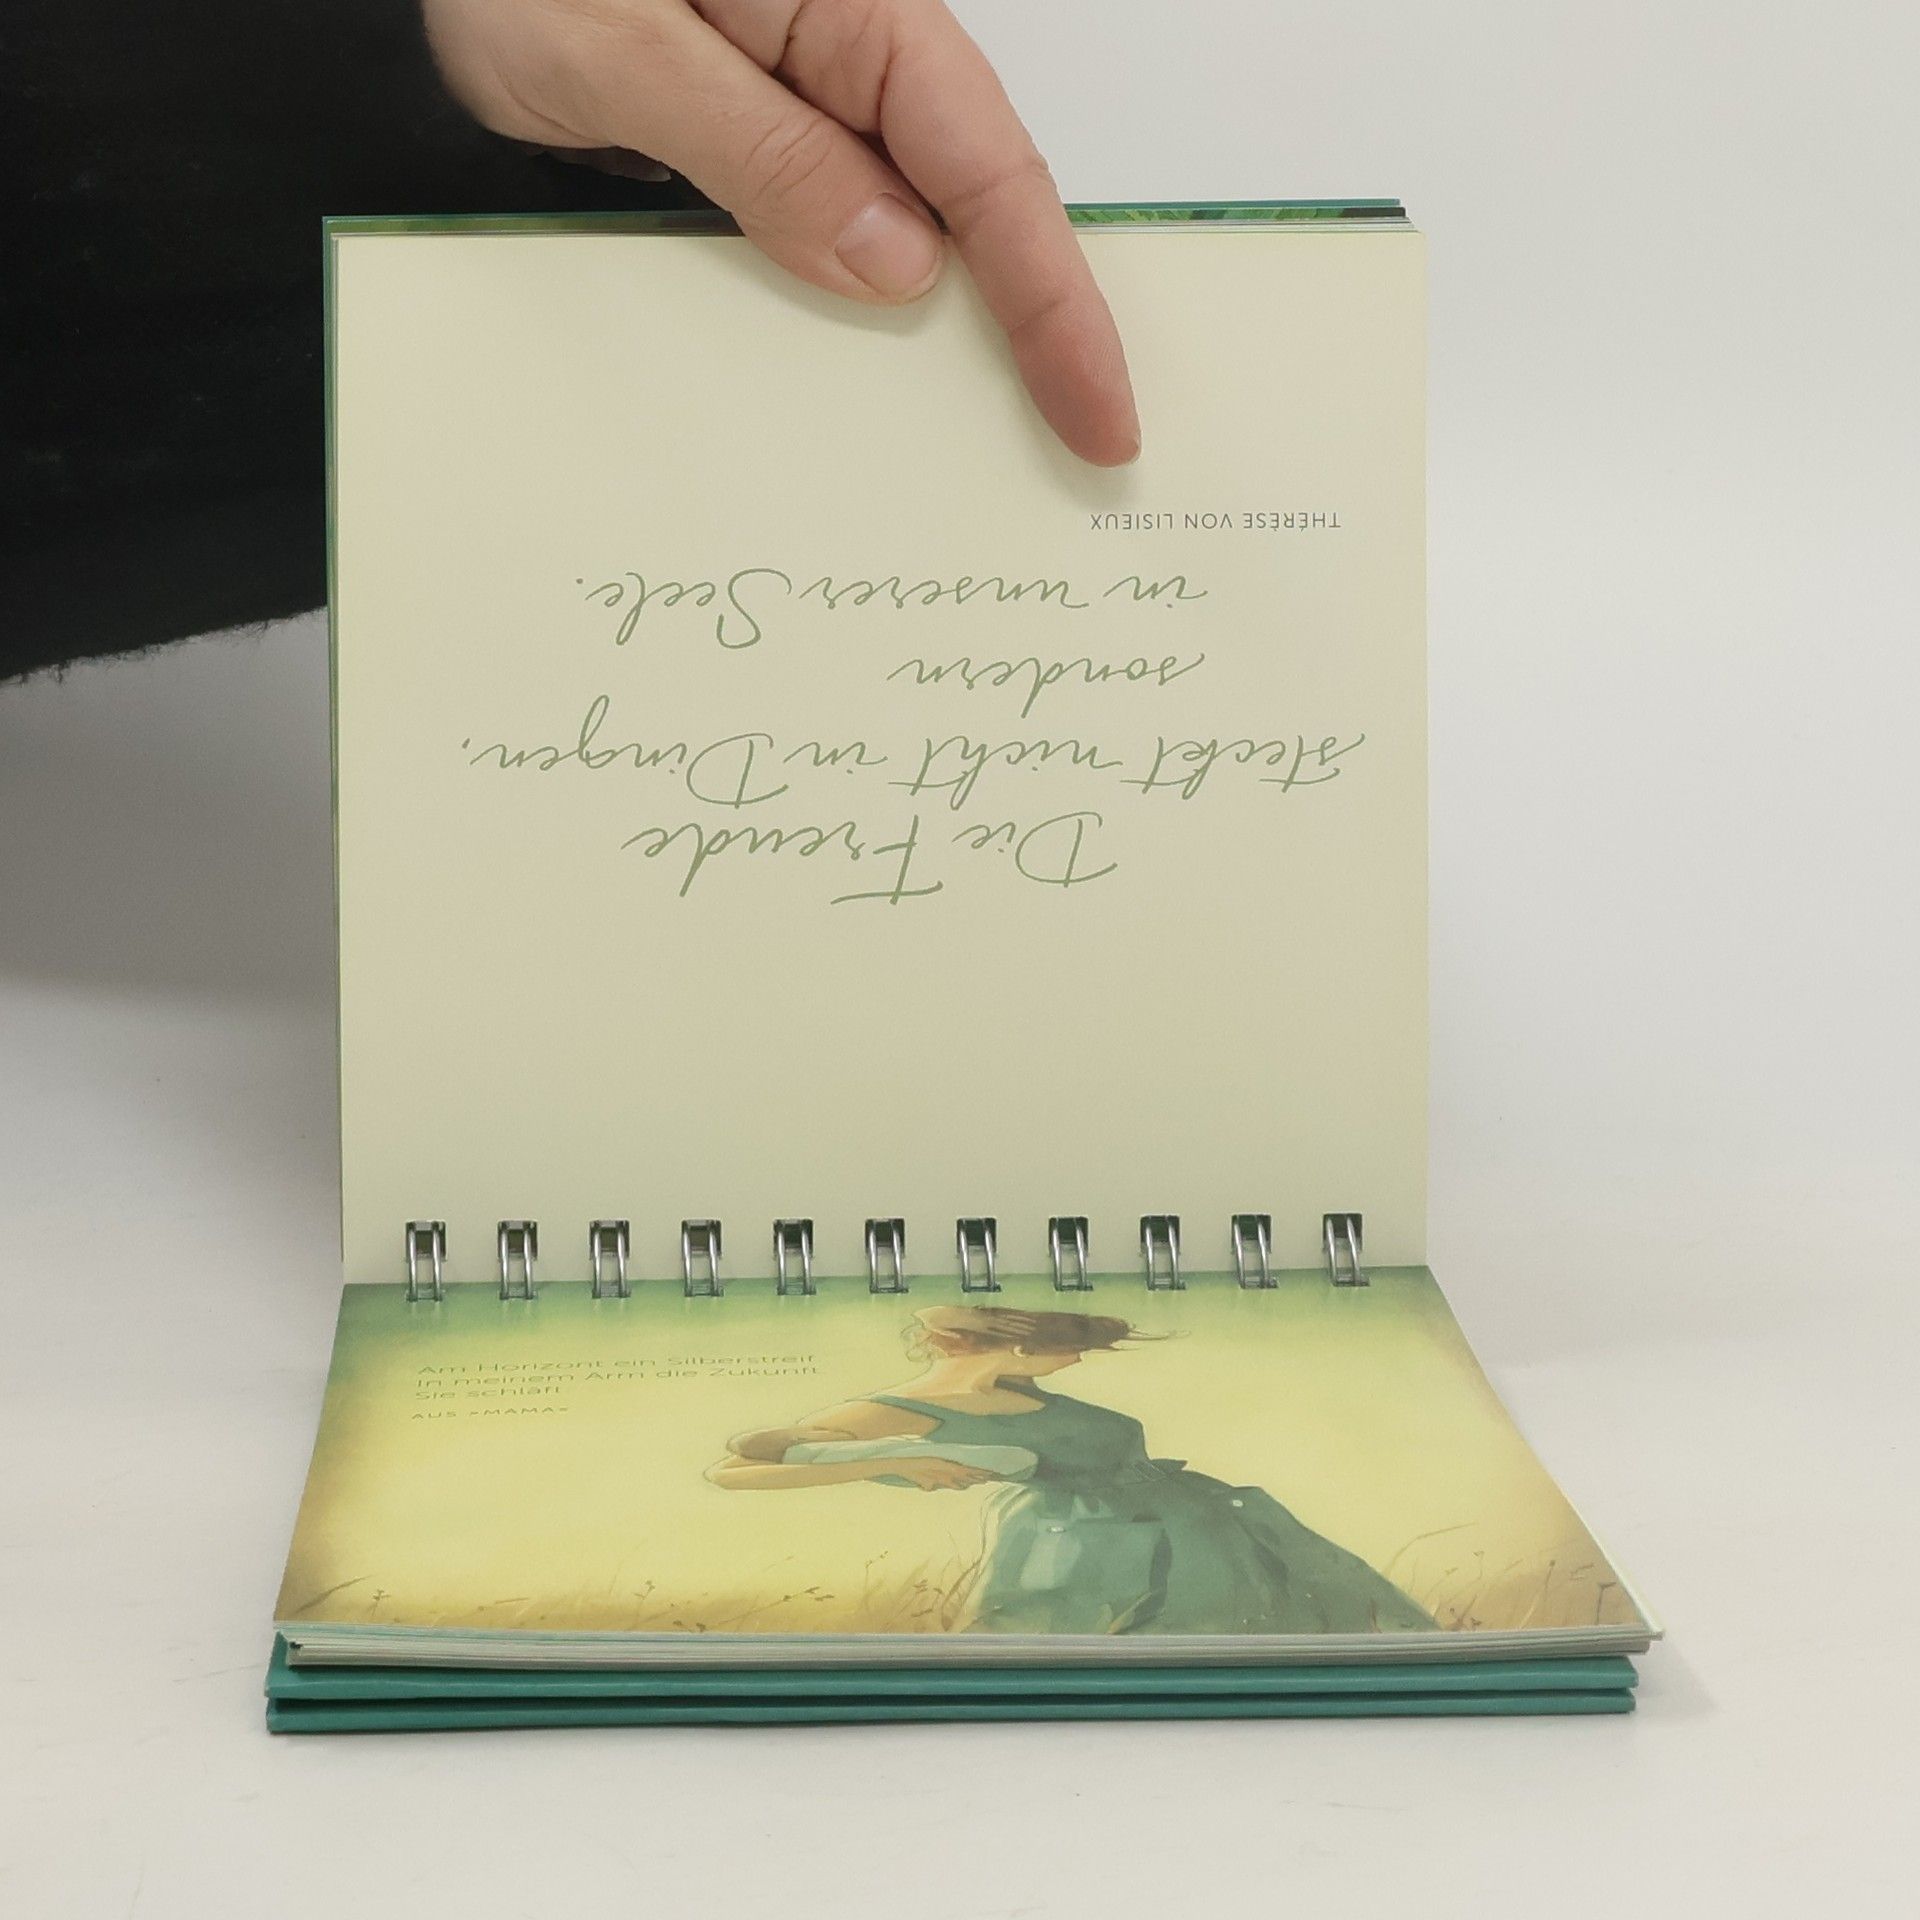 Die Freude
steckt nicht in Dingen,
sondern
in unserer Seele.
THÉRÈSE VON LISIEUX
Am Horizont ein Silberstreif
In meinem Arm die Zukunft.
Sie schläft
AUS »MAMA«